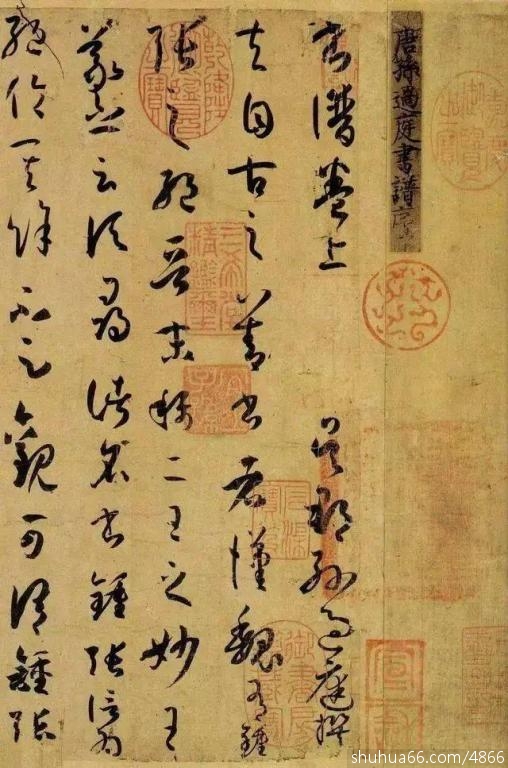 唐孫過庭書譜序
書譜卷上 吳郡孫過庭撰
夫自古之善書者漢魏有鍾
張之絕晉末稱二王之妙王
羲之云頃尋諸名書鍾張信為
絕倫其餘不足觀可謂鍾張
三希堂精鑑璽
宜子孫
shuhua66.com/4866